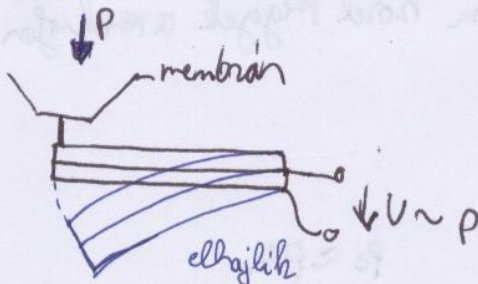 P
membrán
U ~ P
elhajlik